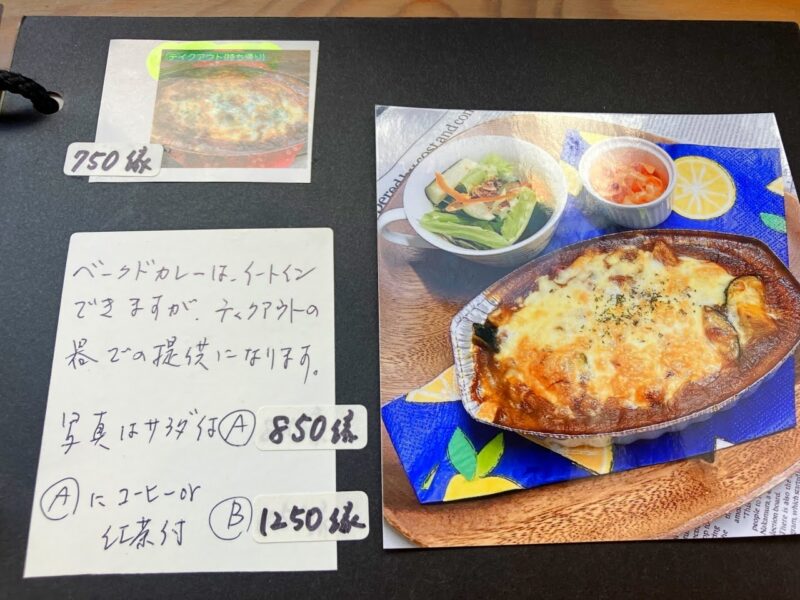 テイクアウト(持ち帰り)
750円
ベークドカレーは、イートイン
できますが、テイクアウトの
器での提供になります。
写真はサラダ付Ⓐ 850円
Ⓐにコーヒーor
紅茶付 Ⓑ 1250円